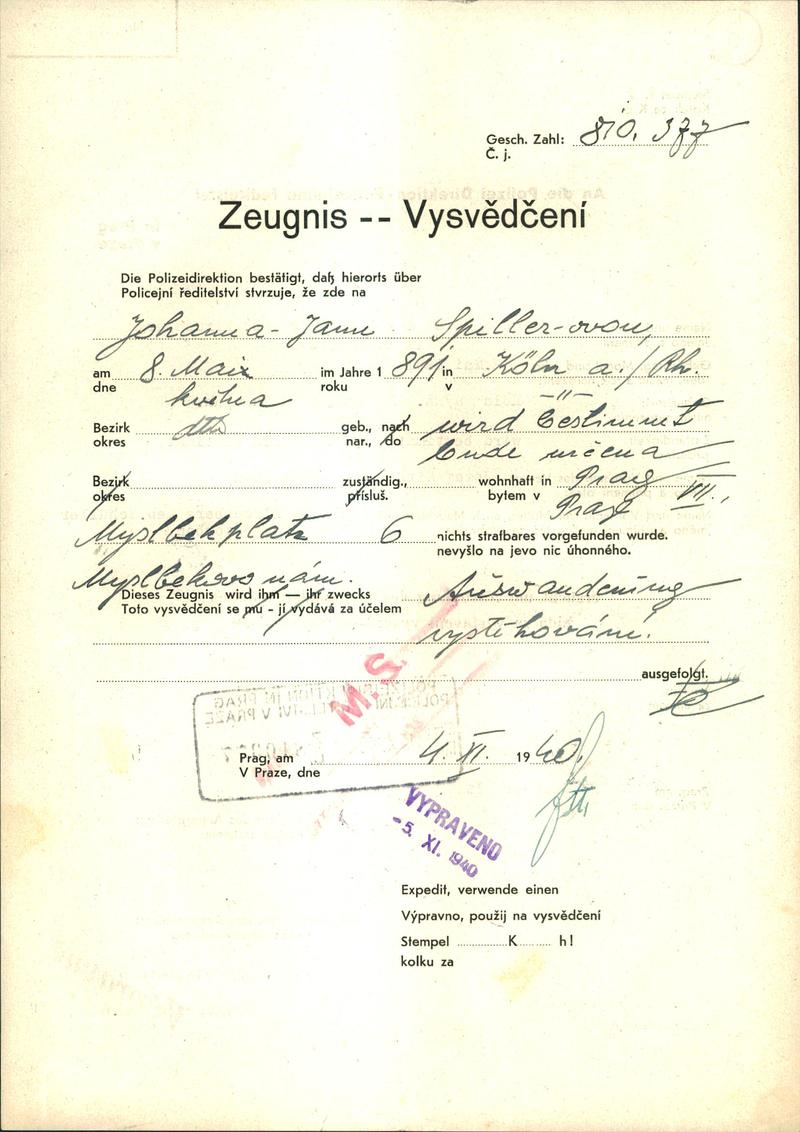 Gesch. Zahl: 810. 377
Č. j.
Zeugnis -- Vysvědčení
Die Polizeidirektion bestätigt, daß hierorts über
Policejní ředitelství stvrzuje, že zde na
Johanna - Janu Spiller-ovou,
am 8. Mai im Jahre 1 891 in Köln a./Rh.
dne května roku v -"-
Bezirk geb., nach wird bestimmt
okres nar., do bude určena
Bezirk zuständig., wohnhaft in Prag VII.,
okres přísluš. bytem v Praze
Myslbekplatz 6 nichts strafbares vorgefunden wurde.
nevyšlo na jevo nic úhonného.
Myslbekovo nám.
Dieses Zeugnis wird ihm — ihr zwecks Auswanderung
Toto vysvědčení se mu - jí vydává za účelem vystěhování.
ausgefolgt.
M. S.
POLIZEIDIREKTION IN PRAG
POLICEJNÍ ŘEDITELSTVÍ V PRAZE
Prag, am 4. XI. 19 40.
V Praze, dne
VYPRAVENO
-5. XI. 1940
Expedit, verwende einen
Výpravno, použij na vysvědčení
Stempel K h!
kolku za